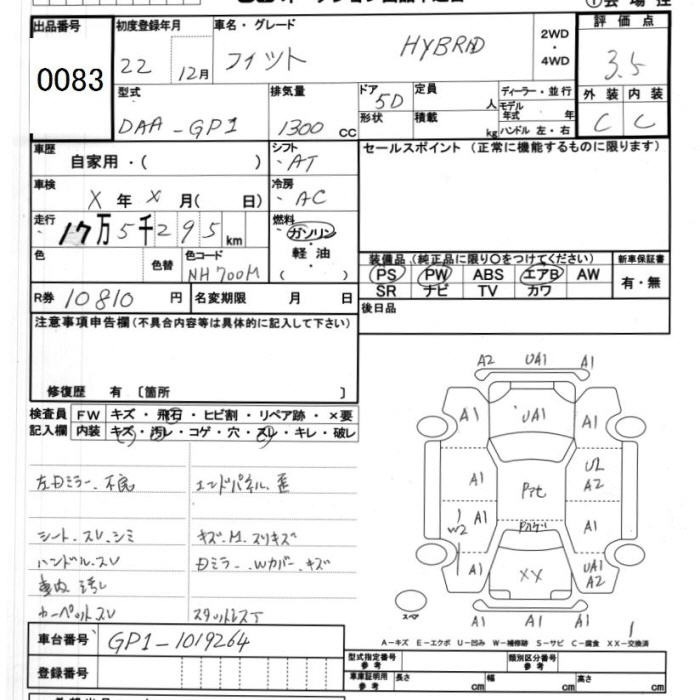 出品番号 初度登録年月 車名・グレード 2WD・4WD 評価点
0083 22 12月 フィット HYBRID 3.5
型式 排気量 ドア 5D 定員 人 ディーラー・並行 外装 内装
DAA-GP1 1300 cc 形状 積載 kg モデル年式 年 ハンドル 左・右 C C
車歴 自家用・( ) シフト AT セールスポイント (正常に機能するものに限ります)
車検 X 年 X 月( 日) 冷房 AC
走行 17万5千295km 燃料 ガソリン・軽油 ( )
色 色替 色コード NH700M
装備品 (純正品に限り〇をつけてください) 新車保証書
PS PW ABS エアB AW 有・無
SR ナビ TV カワ
R券 10810 円 名変期限 月 日 後日品
注意事項申告欄(不具合内容等は具体的に記入して下さい)
修復歴 有 〔箇所 〕
検査員 FW キズ・飛石・ヒビ割・リペア跡・×要
記入欄 内装 キズ・汚レ・コゲ・穴・スレ・キレ・破レ
左Dミラー.不良 エンドパネル.歪
シート.スレ.シミ キズ.M.スリキズ
ハンドル.スレ Dミラー.Wカバー.キズ
車内 汚レ
カーペットスレ
A2 UA1 A1
A1 UA1 A1
A1 U2 A2
W2 A1 A1
A1 XX UA1 A2
A1 A1 A1
スペア
A-キズ E-エクボ U-凹み W-補修跡 S-サビ C-腐食 XX-交換済
車台番号 GP1-1019264
登録番号
型式指定番号 参考 類別区分番号 参考
車庫証明用 参考 長さ cm 幅 cm 高さ cm